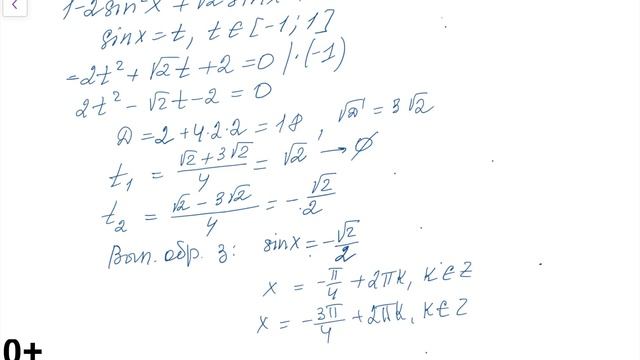 1-2sin²x + √2 sin
sinx = t, t ∈ [-1; 1]
-2t² + √2t + 2 = 0 /·(-1)
2t² - √2t - 2 = 0
D = 2 + 4·2·2 = 18, √D = 3√2
t₁ = (√2 + 3√2)/4 = √2 → ∅
t₂ = (√2 - 3√2)/4 = -√2/2
Вып. обр. з: sinx = -√2/2
x = -π/4 + 2πk, k ∈ Z
x = -3π/4 + 2πk, k ∈ Z
0+